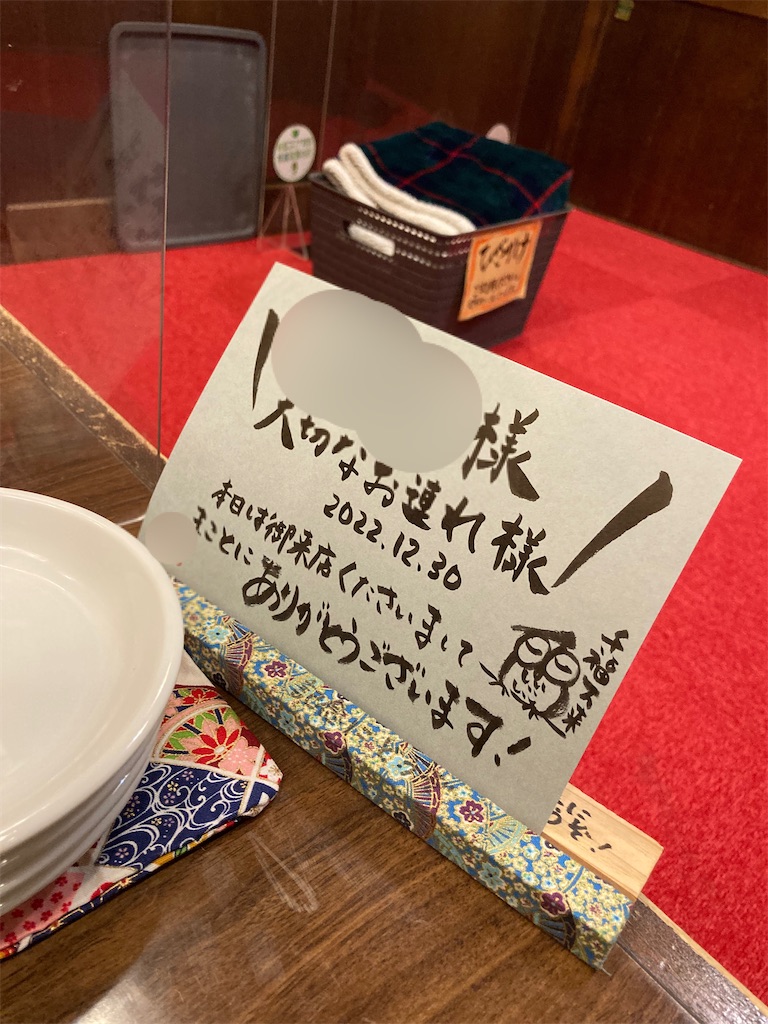 様
大切なお連れ様
2022.12.30
本日は御来店くださいまして
まことに
ありがとうございます!
千福万来
ひざかけ